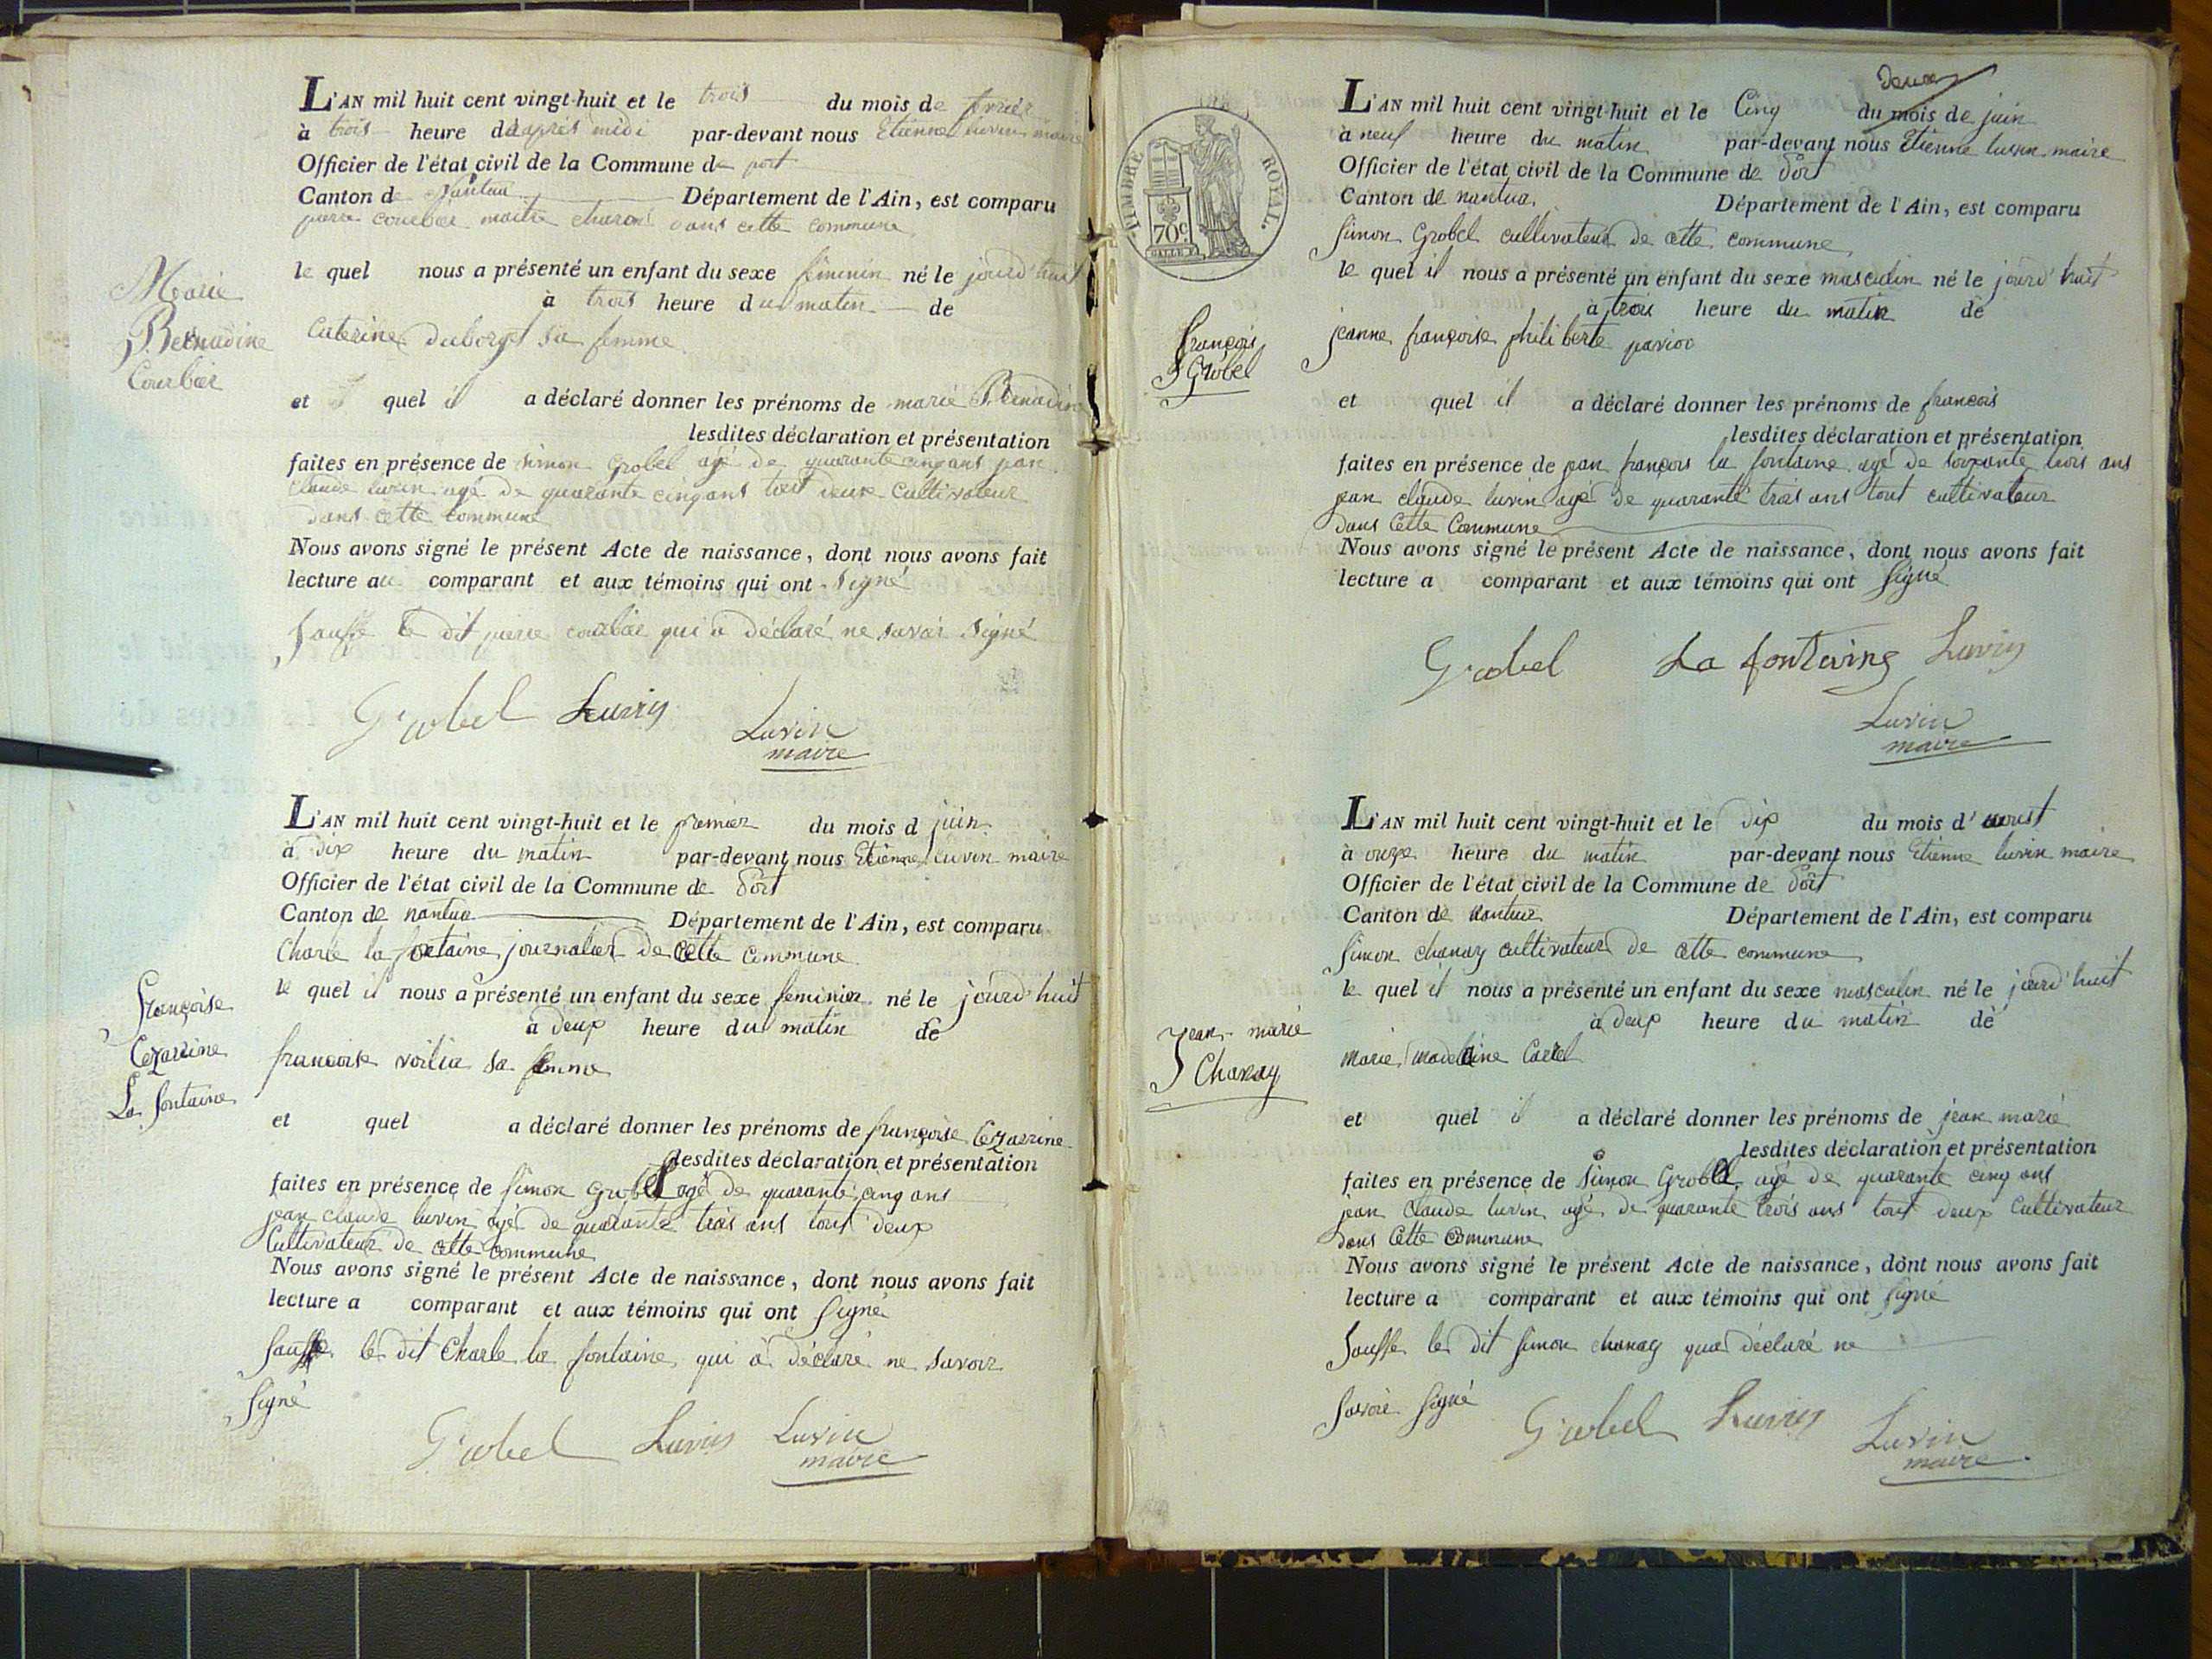 L'AN mil huit cent vingt-huit et le trois du mois de fevrier
à trois heure du après midi par-devant nous Etienne luvin maire
Officier de l'état civil de la Commune de port
Canton de Nantua Département de l'Ain, est comparu
pierre courbar maitre charon dans cette commune
le quel nous a présenté un enfant du sexe féminin né le jourd'huit
à trois heure du matin de
Marie
Bernadine
Courbar
Caterine duborget sa femme
et quel il a déclaré donner les prénoms de marie Bernadine
lesdites déclaration et présentation
faites en présence de simon Grobel agé de quarante cinq ans jean
claude luvin agé de quarante cinq ans tout deux Cultivateur
dans cette commune
Nous avons signé le présent Acte de naissance, dont nous avons fait
lecture au comparant et aux témoins qui ont Signé
Sauffe le dit pierre courbar qui a déclaré ne savoir Signé
Grobel Luvin
Luvin
maire
L'AN mil huit cent vingt-huit et le premier du mois d juin
à dix heure du matin par-devant nous Etienne luvin maire
Officier de l'état civil de la Commune de Port
Canton de nantua Département de l'Ain, est comparu
Charle la fontaine journalier de Cette Commune
le quel il nous a présenté un enfant du sexe feminier né le jourd'huit
à deux heure du matin de
Françoise
Cezarrine
La fontaine
francoise voilia sa femme
et quel a déclaré donner les prénoms de françoise Cezarrine
lesdites déclaration et présentation
faites en présence de Simon Grobel agé de quarante cinq ans
jean claude luvin agé de quarante trois ans tout deux
Cultivateur de cette commune
Nous avons signé le présent Acte de naissance, dont nous avons fait
lecture a comparant et aux témoins qui ont Signé
Sauffe le dit Charle la fontaine qui a déclaré ne savoir
Signé
Grobel Luvin Luvin
maire
TIMBRE ROYAL.
70 c.
L'AN mil huit cent vingt-huit et le Cinq du mois de juin
à neuf heure du matin par-devant nous Etienne luvin maire
Officier de l'état civil de la Commune de Port
Canton de nantua Département de l'Ain, est comparu
Simon Grobel cultivateur de cette commune
le quel il nous a présenté un enfant du sexe masculin né le jourd'huit
à trois heure du matin de
François
Grobel
jeanne françoise philiberte
et quel il a déclaré donner les prénoms de francois
lesdites déclaration et présentation
faites en présence de jean françois la fontaine agé de soixante trois ans
jean claude luvin agé de quarante trois ans tout cultivateur
dans Cette Commune
Nous avons signé le présent Acte de naissance, dont nous avons fait
lecture a comparant et aux témoins qui ont Signé
Grobel La fontaine Luvin
Luvin
maire
L'AN mil huit cent vingt-huit et le dix du mois d' aoust
à onze heure du matin par-devant nous Etienne luvin maire
Officier de l'état civil de la Commune de Port
Canton de nantua Département de l'Ain, est comparu
Simon chanay cultivateur de cette commune
le quel il nous a présenté un enfant du sexe masculin né le jourd'huit
à deux heure du matin de
Jean marie
Chanay
marie madelaine Carrel
et quel il a déclaré donner les prénoms de jean marie
lesdites déclaration et présentation
faites en présence de Simon Grobel agé de quarante cinq ans
jean Claude luvin agé de quarante trois ans tout deux Cultivateur
dans Cette Commune
Nous avons signé le présent Acte de naissance, dont nous avons fait
lecture a comparant et aux témoins qui ont Signé
Sauffe le dit simon chanay qua déclaré ne
Savoir Signé
Grobel Luvin Luvin
maire